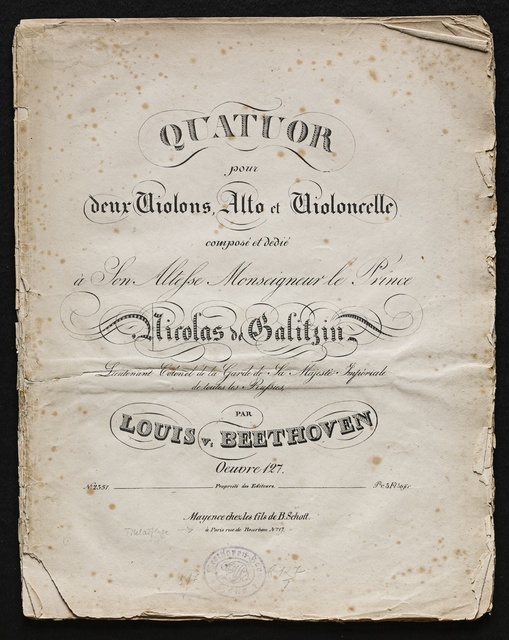 QUATUOR
pour
deux Violons, Alto et Violoncelle
composé et dedié
à Son Altesse Monseigneur le Prince
Nicolas de Galitzin,
Lieutenant Colonel de la Garde de Sa Majesté Impériale
de toutes les Russies,
PAR
LOUIS v. BEETHOVEN
Oeuvre 127.
N° 2351. Propriété des Editeurs.
Mayence chez les fils de B. Schott.
à Paris rue de Bourbon N° 17.